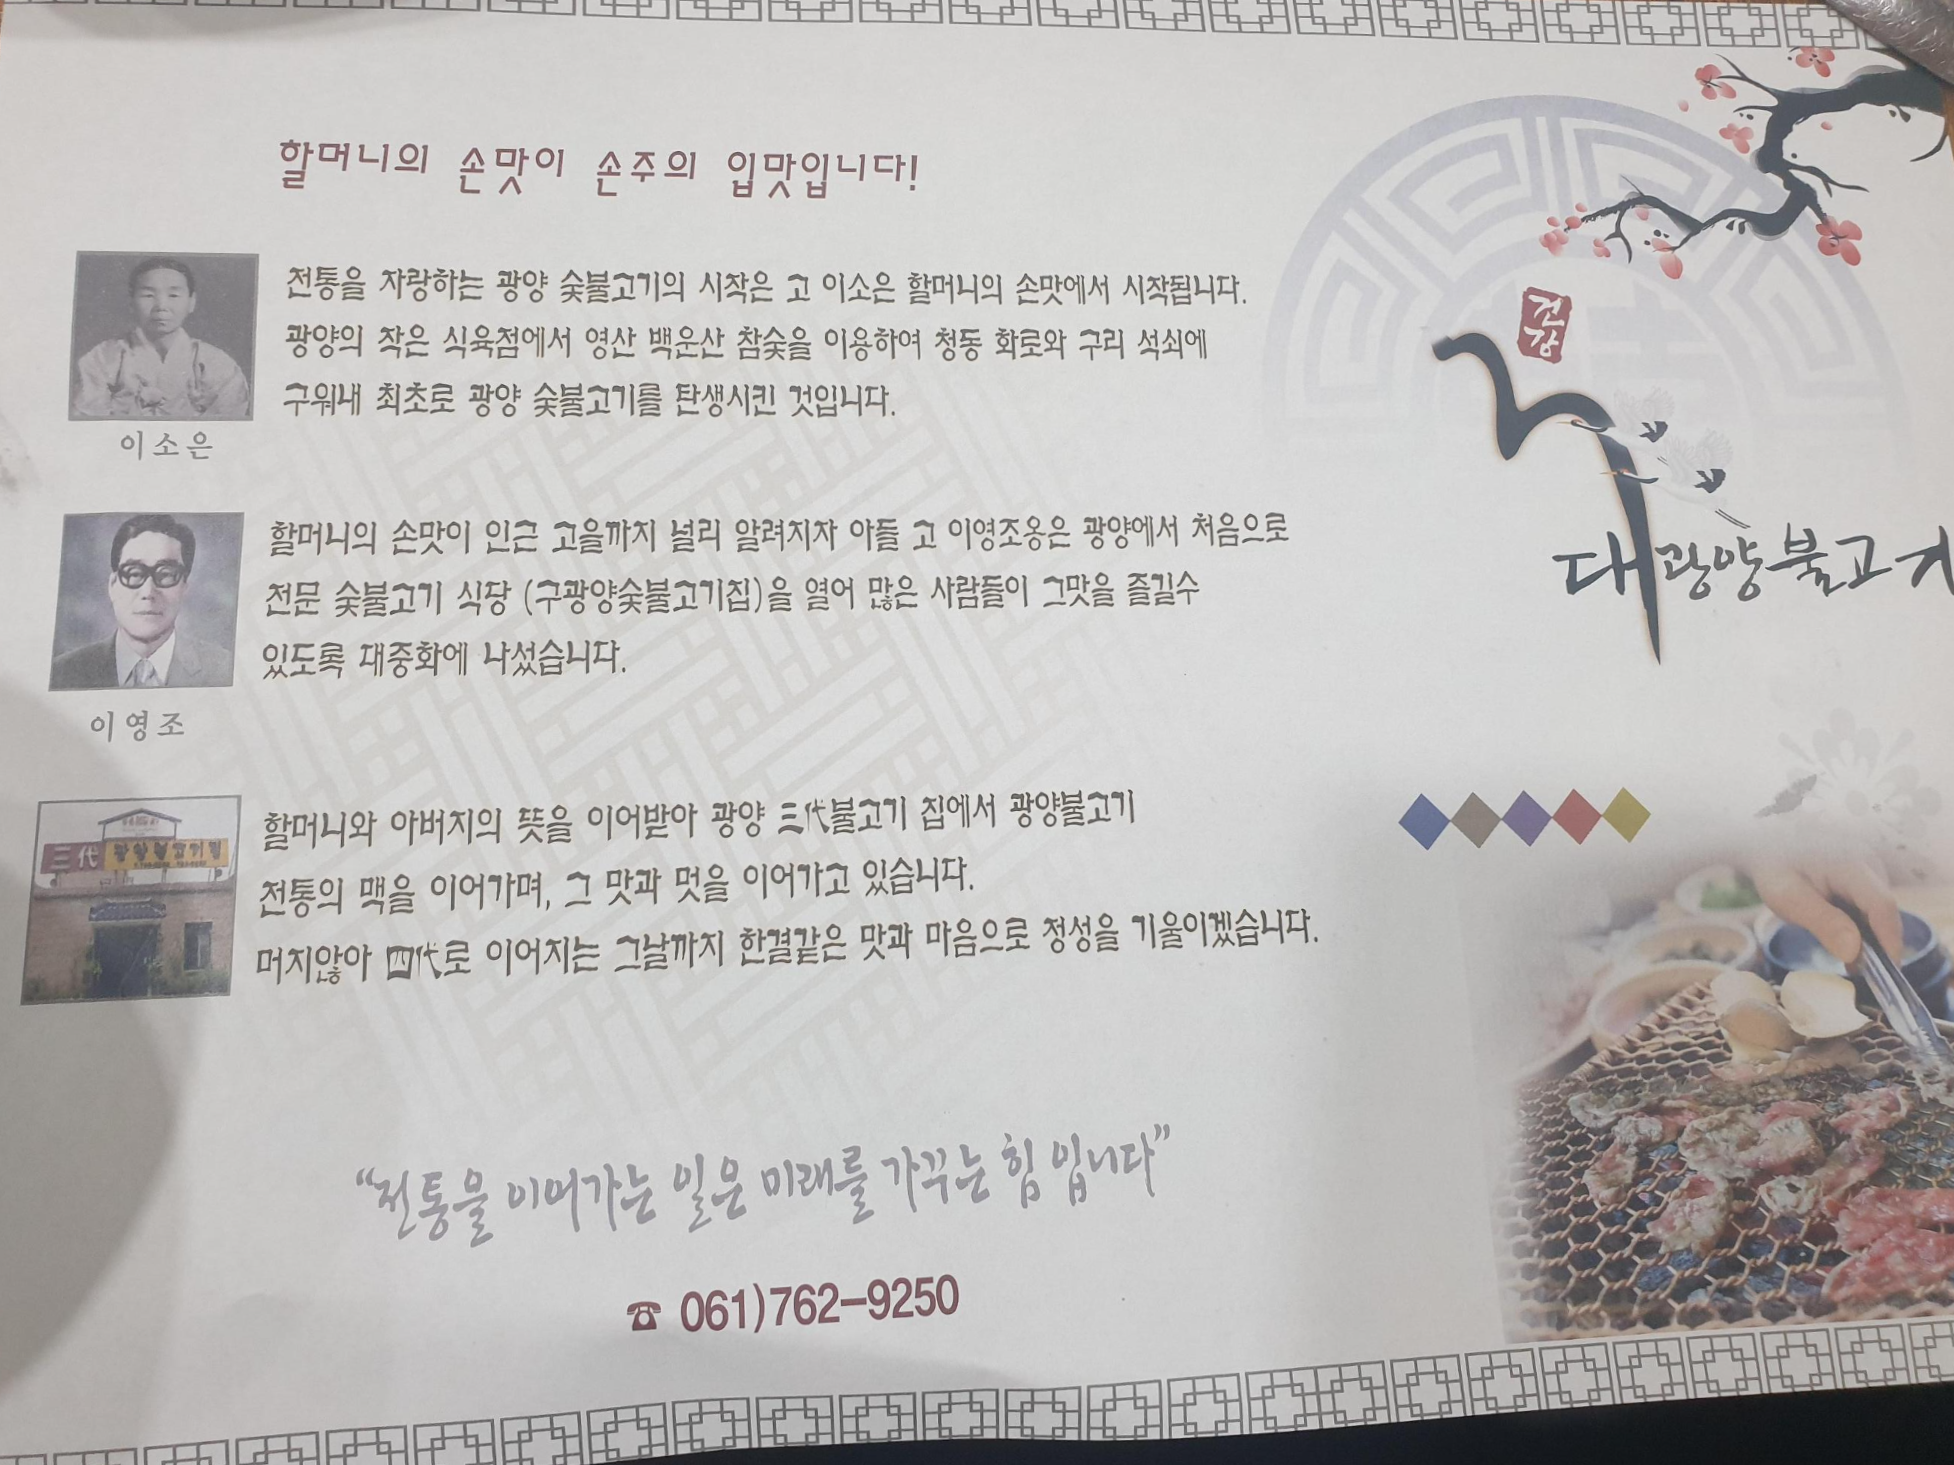 할머니의 손맛이 손주의 입맛입니다!
전통을 자랑하는 광양 숯불고기의 시작은 고 이소은 할머니의 손맛에서 시작됩니다.
광양의 작은 식육점에서 영산 백운산 참숯을 이용하여 청동 화로와 구리 석쇠에
구워내 최초로 광양 숯불고기를 탄생시킨 것입니다.
이소은
할머니의 손맛이 인근 고을까지 널리 알려지자 아들 고 이영조옹은 광양에서 처음으로
전문 숯불고기 식당 (구광양숯불고기집)을 열어 많은 사람들이 그맛을 즐길수
있도록 대중화에 나섰습니다.
이영조
할머니와 아버지의 뜻을 이어받아 광양 三代불고기 집에서 광양불고기
전통의 맥을 이어가며, 그 맛과 멋을 이어가고 있습니다.
머지않아 四代로 이어지는 그날까지 한결같은 맛과 마음으로 정성을 기울이겠습니다.
三代 광양불고기집
"전통을 이어가는 일은 미래를 가꾸는 힘 입니다"
☎ 061)762-9250
건강
대광양불고기